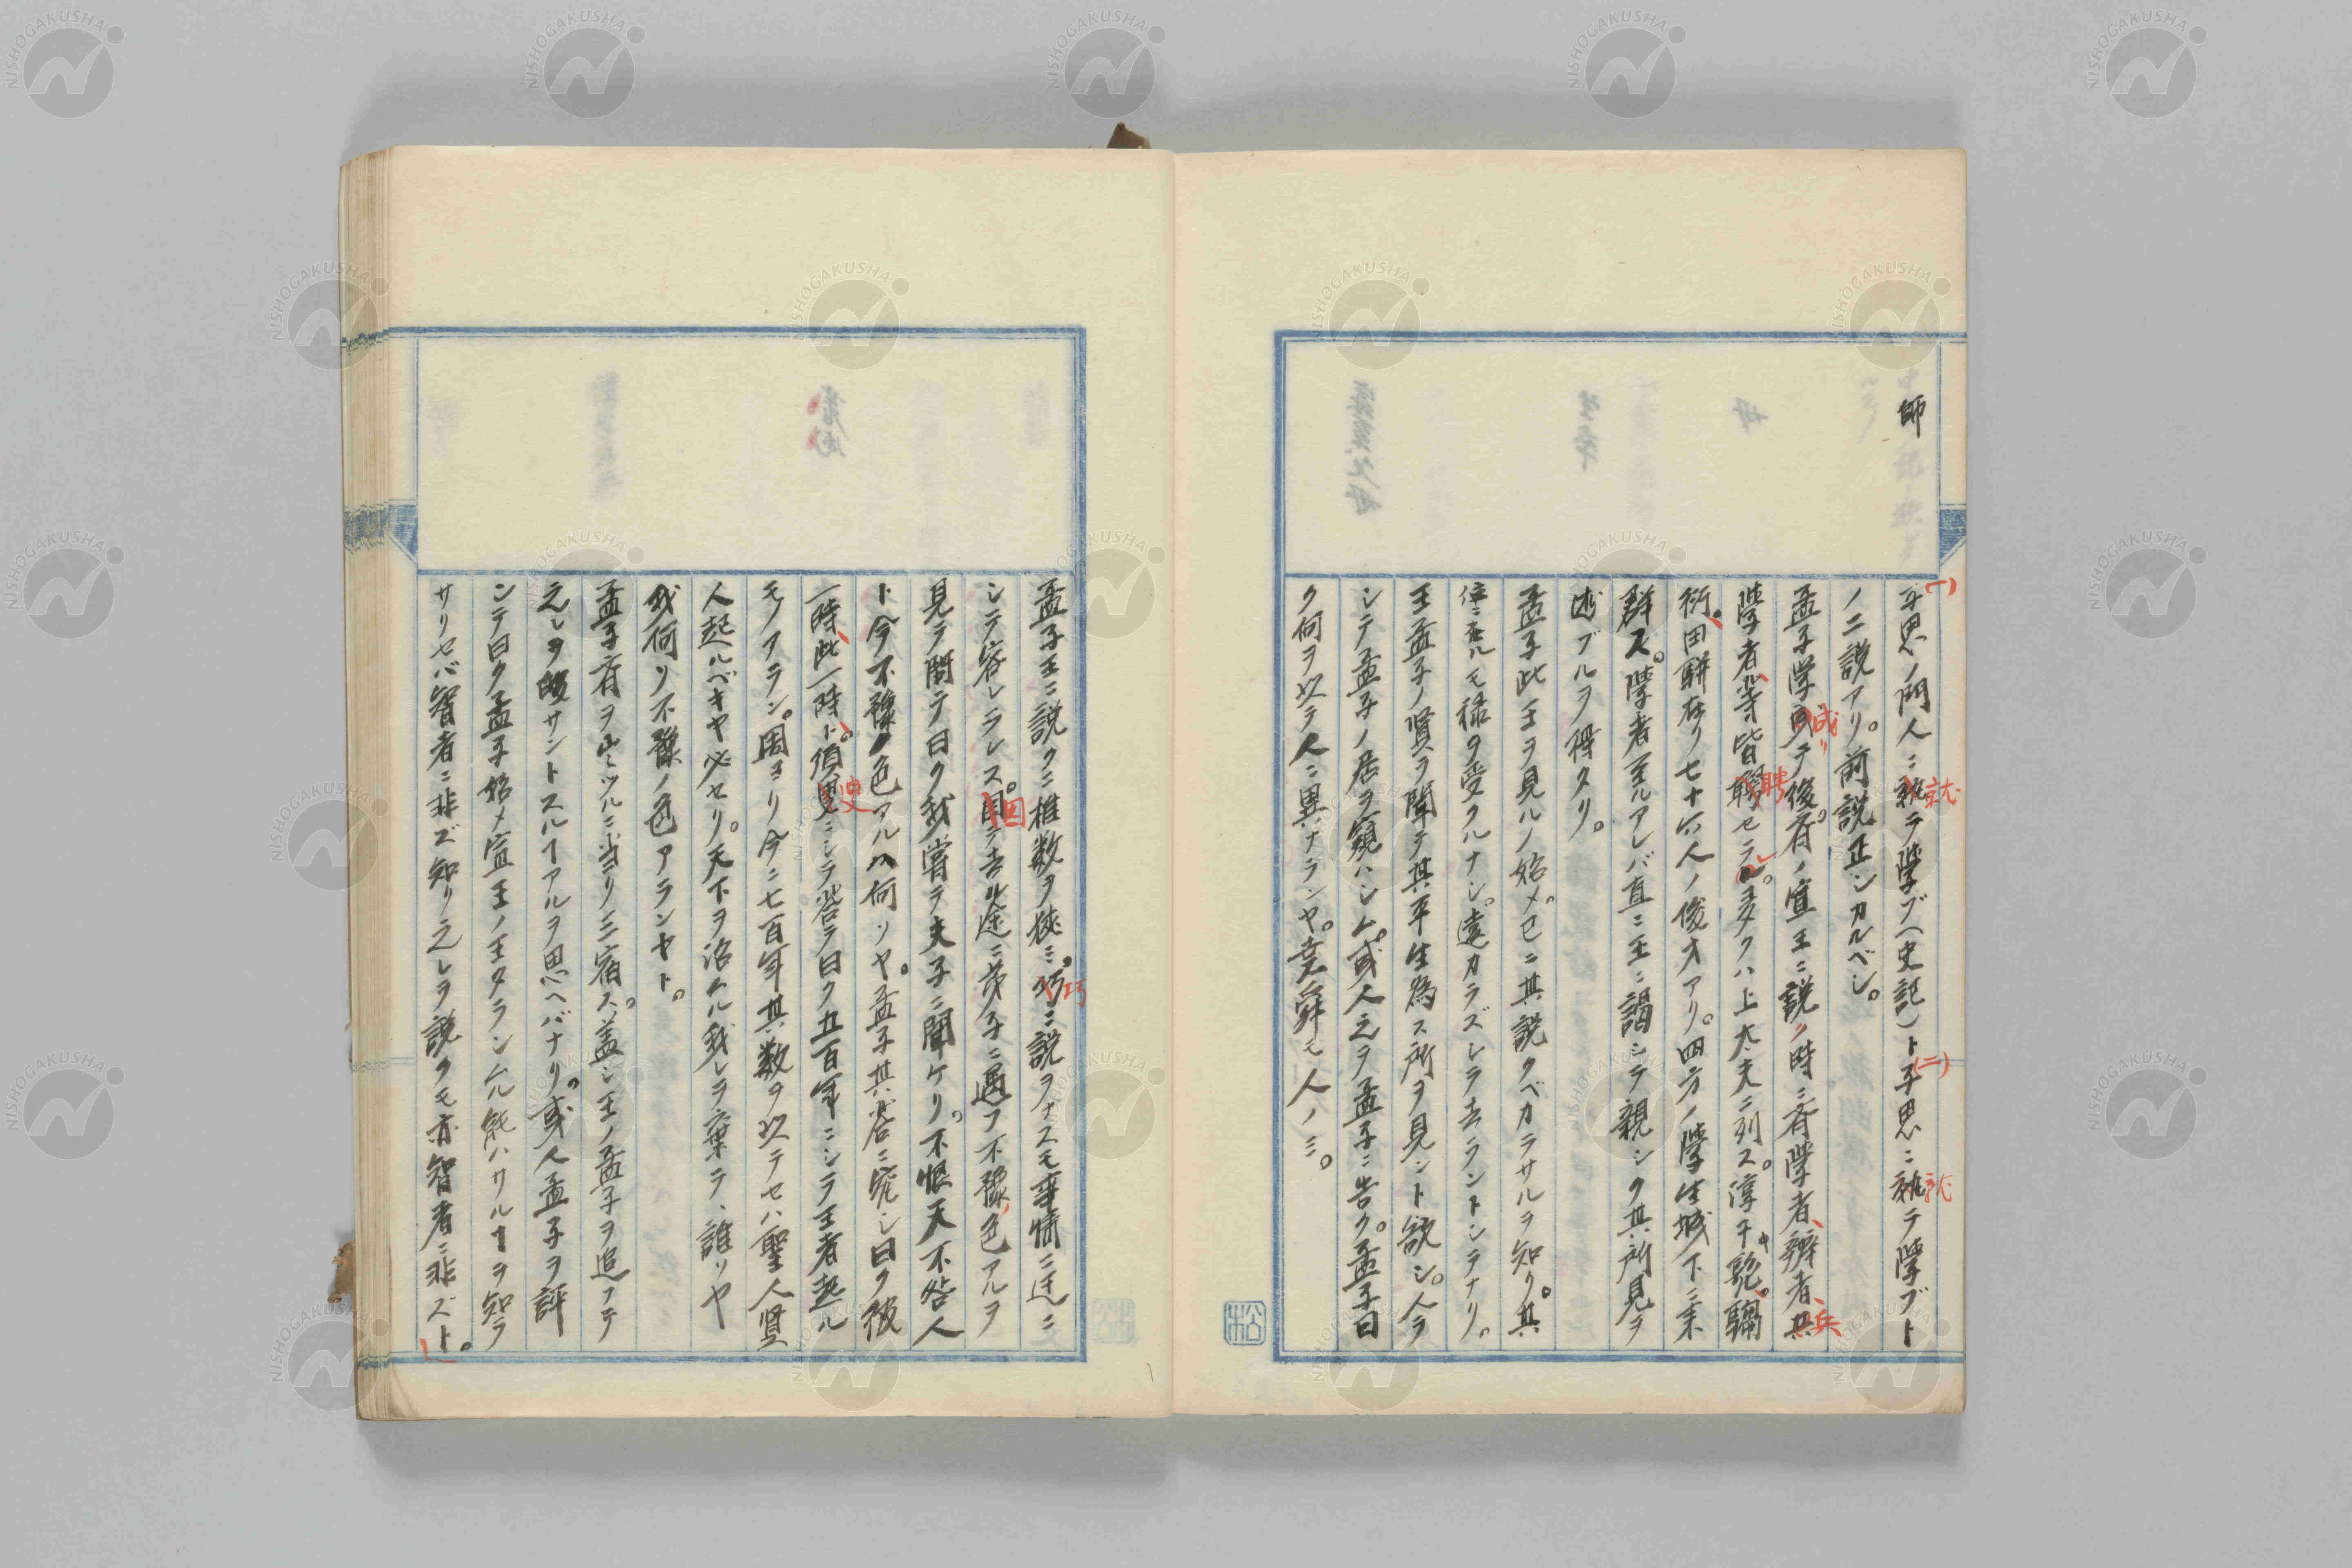 師
(一)子思ノ門人ニ就テ學ブ(史記)ト(二)子思ニ就テ學ブト
ノ二説アリ。前説正シカルベシ。
孟子學成リテ後。斉ノ宣王ニ説ク時ニ斉學者、辯者、兵
學者、等皆聘セラレ。多クハ上大夫ニ列ス。淳于髡。騶
衍。田駢在リ七十六人ノ俊才アリ。四方ノ學生城下ニ来
群ス。學者至ルアレバ直ニ王ニ謁シテ親シク其所見ヲ
述ブルヲ得タリ。
孟子此王ヲ見ルノ始メ。已ニ其説クベカラサルヲ知リ。其
位ニ在ルモ禄ヲ受クルナシ。遠カラズシテ去ラントシテナリ。
王孟子ノ賢ヲ聞テ其平生為ス所ヲ見ント欲シ。人ヲ
シテ孟子ノ居ヲ窺ハシム。或人之ヲ孟子ニ告ク。孟子曰
ク何ヲ以テ人ニ異ナランヤ。堯舜モ人ノミ。
孟子王ニ説クニ推数ヲ挟ミ。巧ニ説ヲナスモ事情ニ迂ニ
シテ容レラレス。因テ去ル途ニ弟子ニ遇フ不豫色アルヲ
見テ問テ曰ク我嘗テ夫子ニ聞ケリ。不恨天不咎人
ト今不豫ノ色アルハ何ソヤ。孟子其答ニ窮シ曰ク彼
一時、此一時ト。須臾ニシテ答テ曰ク五百年ニシテ王者起ル
モノアラン。周ヨリ今ニ七百年其数ヲ以テセハ聖人賢
人起ルベキヤ必セリ。天下ヲ治ムル我レヲ棄テ、誰ソヤ
我何ソ不豫ノ色アランヤト。
孟子斉ヲ出ツルニ当リ三宿ス。蓋シ王ノ孟子ヲ追フテ
之レヲ返サントスルヿアルヲ思ヘバナリ。或人孟子ヲ評
シテ曰ク孟子始メ宣王ノ王タランムル能ハサルヿヲ知ラ
サリセバ智者ニ非ズ知リ之レヲ説クモ亦智者ニ非ズト。
NISHOGAKUSHA